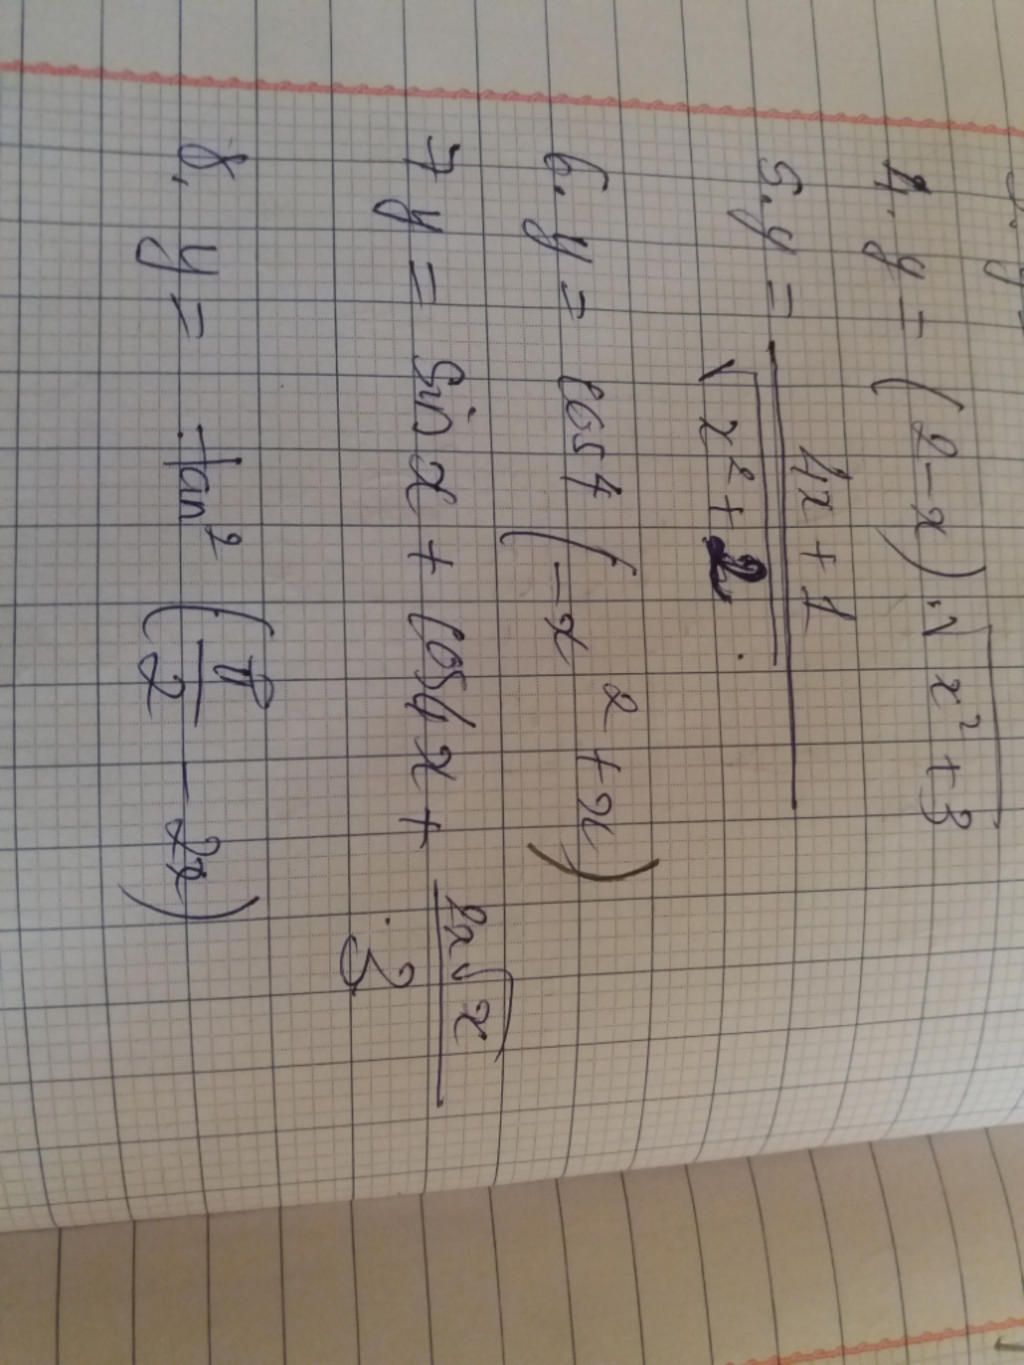 4. y = (2-x)·√x²+3
5. y = 4x+1 / √x²+2
6. y = cos⁴(-x²+x)
7 y = sin x + cos4x + 2x√x / 3
8. y = tan²(π/2 - 2x)